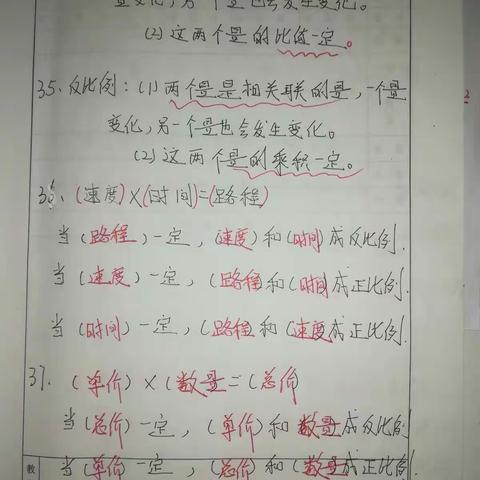 量变化，另一个量也会发生变化。
(2)这两个量的比值一定。
35.反比例：(1)两个量是相关联的量，一个量
变化，另一个量也会发生变化。
(2)这两个量的乘积一定。
36、(速度)×(时间)=(路程)
当(路程)一定，(速度)和(时间)成反比例.
当(速度)一定，(路程)和(时间)成正比例.
当(时间)一定，(路程)和(速度)成正比例.
37.(单价)×(数量)=(总价)
当(总价)一定，(单价)和(数量)成反比例
当(单价)一定，(总价)和(数量)成正比例.
教
2